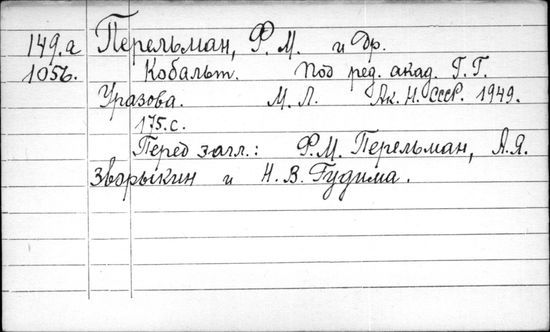 149.а Перельман, Ф. М. и др.
1056. Кобальт. Под ред. акад. Г. Г.
Уразова. М. Л. Ак. Н. СССР. 1949.
175.с.
Перед загл.: Ф.М. Перельман, А.Я.
Зворыкин и Н.В. Гудима.